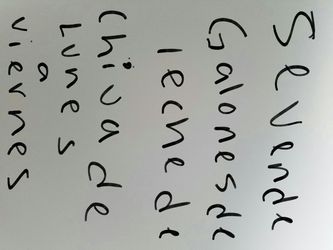 Se Vende
Galones de
leche de
Chiva de
Lunes
a
viernes